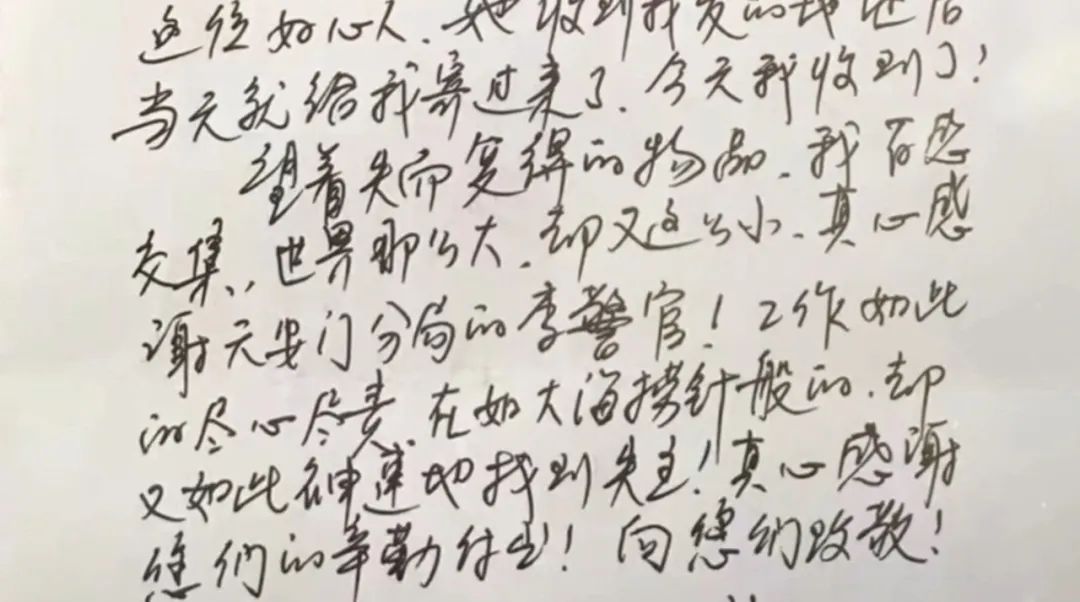 这位好心人、她收到我发的地址后
当天就给我寄过来了、今天我收到了！
望着失而复得的物品、我百感
交集、世界那么大、却又这么小、真心感
谢天安门分局的李警官！工作如此
的尽心尽责、在如大海捞针般的、却
又如此神速地找到失主！真心感谢
您们的辛勤付出！向您们致敬！